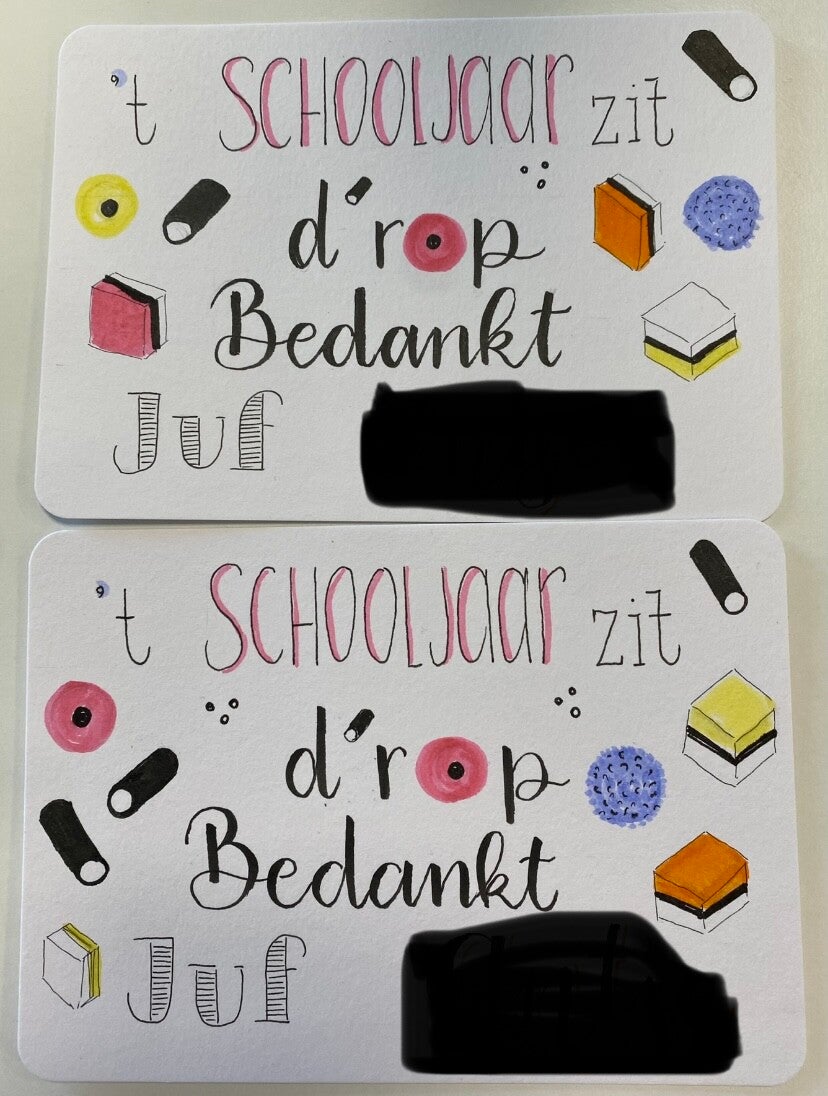 't SCHOOLJaar zit
d'rop
Bedankt
Juf
't SCHOOLJaar zit
d'rop
Bedankt
Juf